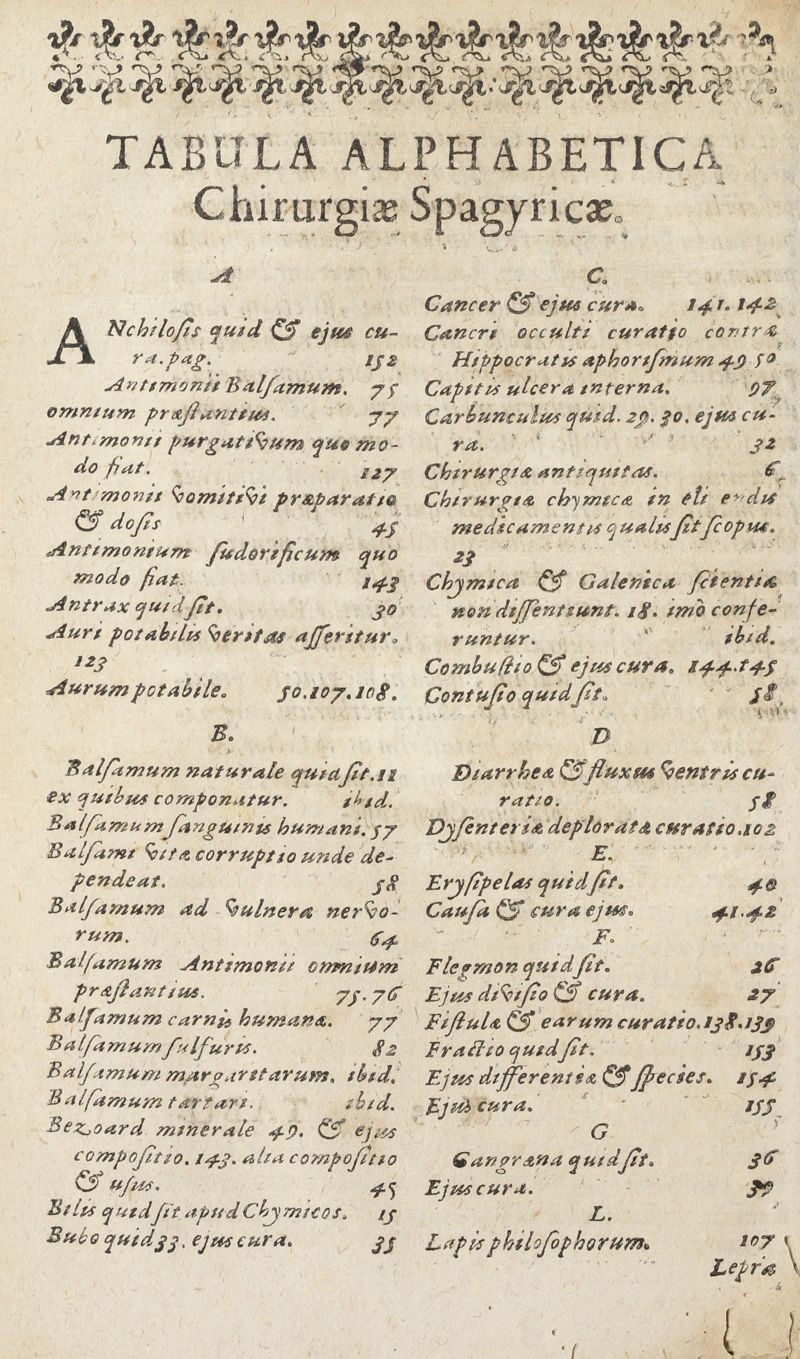 TABULA ALPHABETICA
Chirurgiæ Spagyricæ.
A
ANchiloſis quid & ejus cu-
ra. pag. 152
Antimonii Balſamum. 75
omnium præſtantius. 77
Antimonii purgativum quo mo-
do fiat. 127
Antimonii vomitivi præparatio
& doſis 45
Antimonium ſudorificum quo
modo fiat. 143
Antrax quid ſit. 30
Auri potabilis veritas aſſeritur.
123
Aurum potabile. 50.107.108.
B.
Balſamum naturale quid ſit. 11
ex quibus componatur. ibid.
Balſamum ſanguinis humani. 57
Balſami vitæ corruptio unde de-
pendeat. 58
Balſamum ad vulnera nervo-
rum. 64
Balſamum Antimonii omnium
præſtantius. 75.76
Balſamum carnis humanæ. 77
Balſamum ſulfuris. 82
Balſamum margaritarum. ibid.
Balſamum tartari. ibid.
Bezoard minerale 49. & ejus
compoſitio. 143. alia compoſitio
& uſus. 45
Bilis quid ſit apud Chymicos. 15
Bubo quid 33. ejus cura. 35
C.
Cancer & ejus cura. 141. 142
Cancri occulti curatio contra
Hippocratis aphoriſmum 49 50
Capitis ulcera interna. 97
Carbunculus quid. 29. 30. ejus cu-
ra. 32
Chirurgiæ antiquitas. 6
Chirurgiæ chymicæ in
medicamentis qualis ſit ſcopus.
23
Chymica & Galenica ſcientiæ
non diſſentiunt. 18. imò conſe-
runtur. ibid.
Combuſtio & ejus cura. 144.145
Contuſio quid ſit. 58
D
Diarrheæ & fluxus ventris cu-
ratio. 58
Dyſenteriæ deploratæ curatio. 102
E.
Eryſipelas quid ſit. 40
Cauſa & cura ejus. 41.42
F.
Flegmon quid ſit. 26
Ejus diviſio & cura. 27
Fiſtulæ & earum curatio. 138.139
Fractio quid ſit. 153
Ejus differentiæ & ſpecies. 154
Ejus cura. 155
G
Gangræna quid ſit. 36
Ejus cura. 39
L.
Lapis philoſophorum. 107
Lepræ